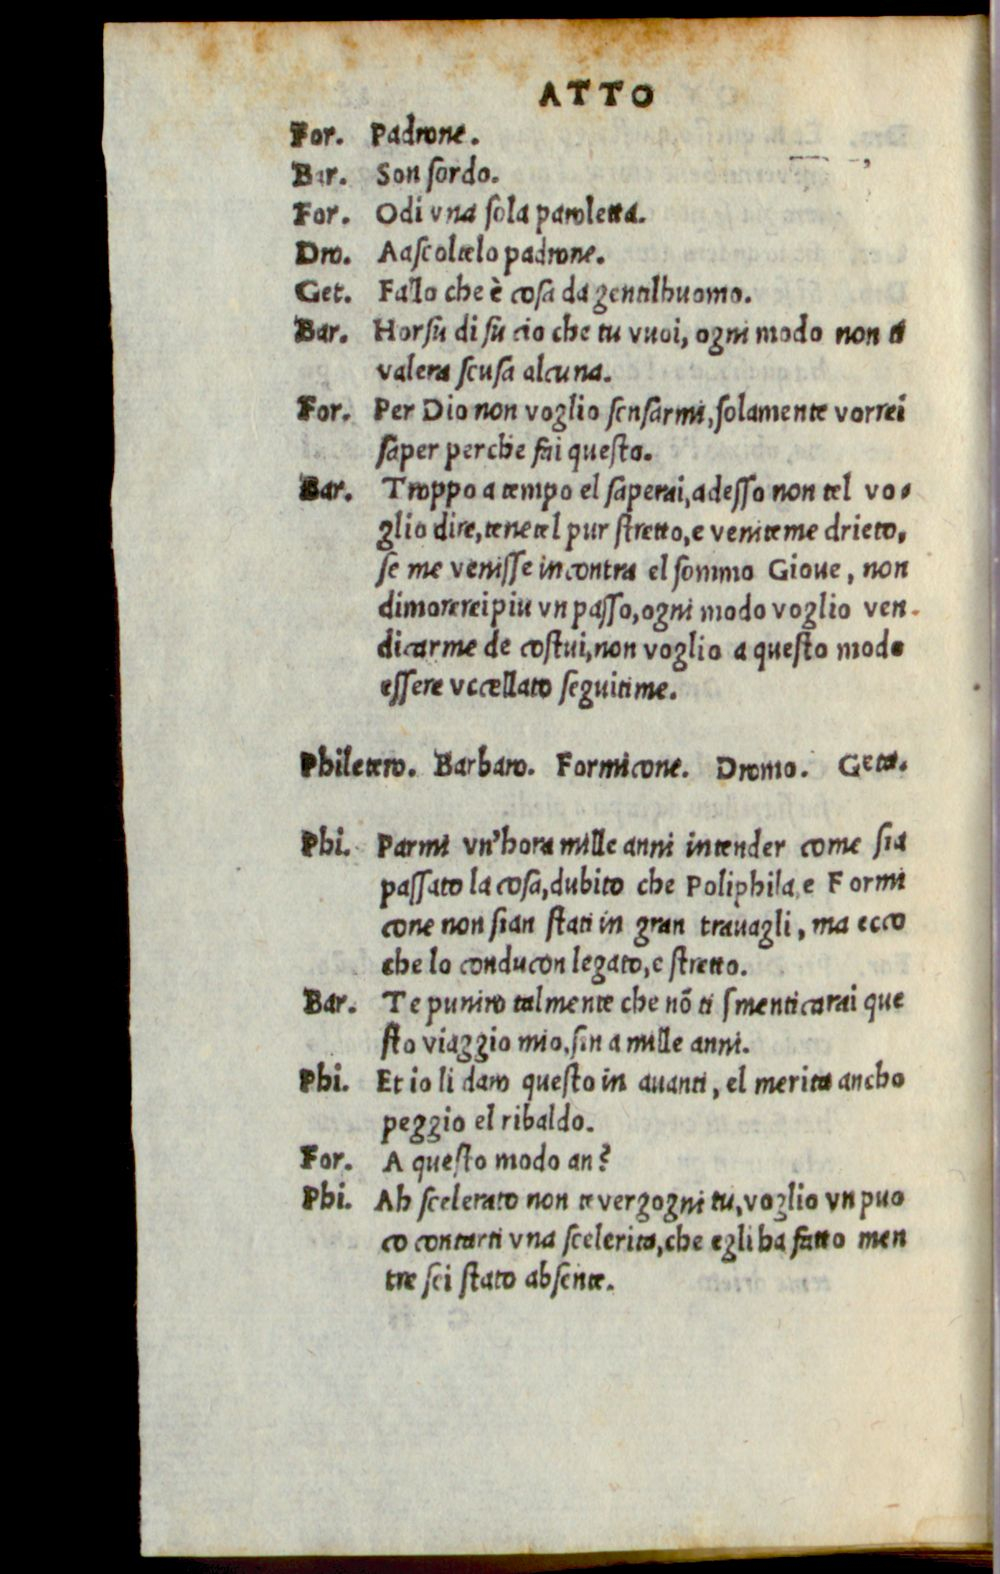 ATTO
For. Padrone.
Bar. Son ſordo.
For. Odi vna ſola paroletta.
Dro. Aaſcoltelo padrone.
Get. Fallo che è coſa da gentilhuomo.
Bar. Horſu di ſu cio che tu vuoi, ogni modo non ti
valera ſcuſa alcuna.
For. Per Dio non voglio ſcuſarmi, ſolamente vorrei
ſaper perche fai queſto.
Bar. Troppo a tempo el ſaperai, adeſſo non tel vo-
glio dire, tenetel pur ſtretto, e veniteme drieto,
ſe me veniſſe incontra el ſommo Gioue, non
dimorerei piu vn paſſo, ogni modo voglio ven-
dicarme de coſtui, non voglio a queſto modo
eſſere vccellato ſeguitime.
Philetero. Barbaro. Formicone. Dromo. Geta.
Phi. Parmi vn'hora mille anni intender come ſia
paſſato la coſa, dubito che Poliphila e Formi
cone non ſian ſtati in gran trauagli, ma ecco
che lo conducon legato, e ſtretto.
Bar. Te puniro talmente che nõ ti ſmenticarai que
ſto viaggio mio, ſin a mille anni.
Phi. Et io li daro queſto in auanti, el merita ancho
peggio el ribaldo.
For. A queſto modo an?
Phi. Ah ſcelerato non te vergogni tu, voglio vn puo
co contarti vna ſcelerita, che egli ha fatto men
tre ſei ſtato abſente.